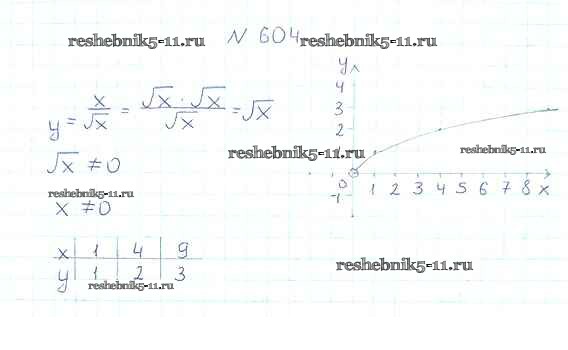 N 604
reshebnik5-11.ru reshebnik5-11.ru
y = x/√x = √x · √x/√x = √x
√x ≠ 0
reshebnik5-11.ru
x ≠ 0
x 1 4 9
y 1 2 3
reshebnik5-11.ru
y
4
3
2
1
0
-1
1 2 3 4 5 6 7 8 x
reshebnik5-11.ru
reshebnik5-11.ru
reshebnik5-11.ru